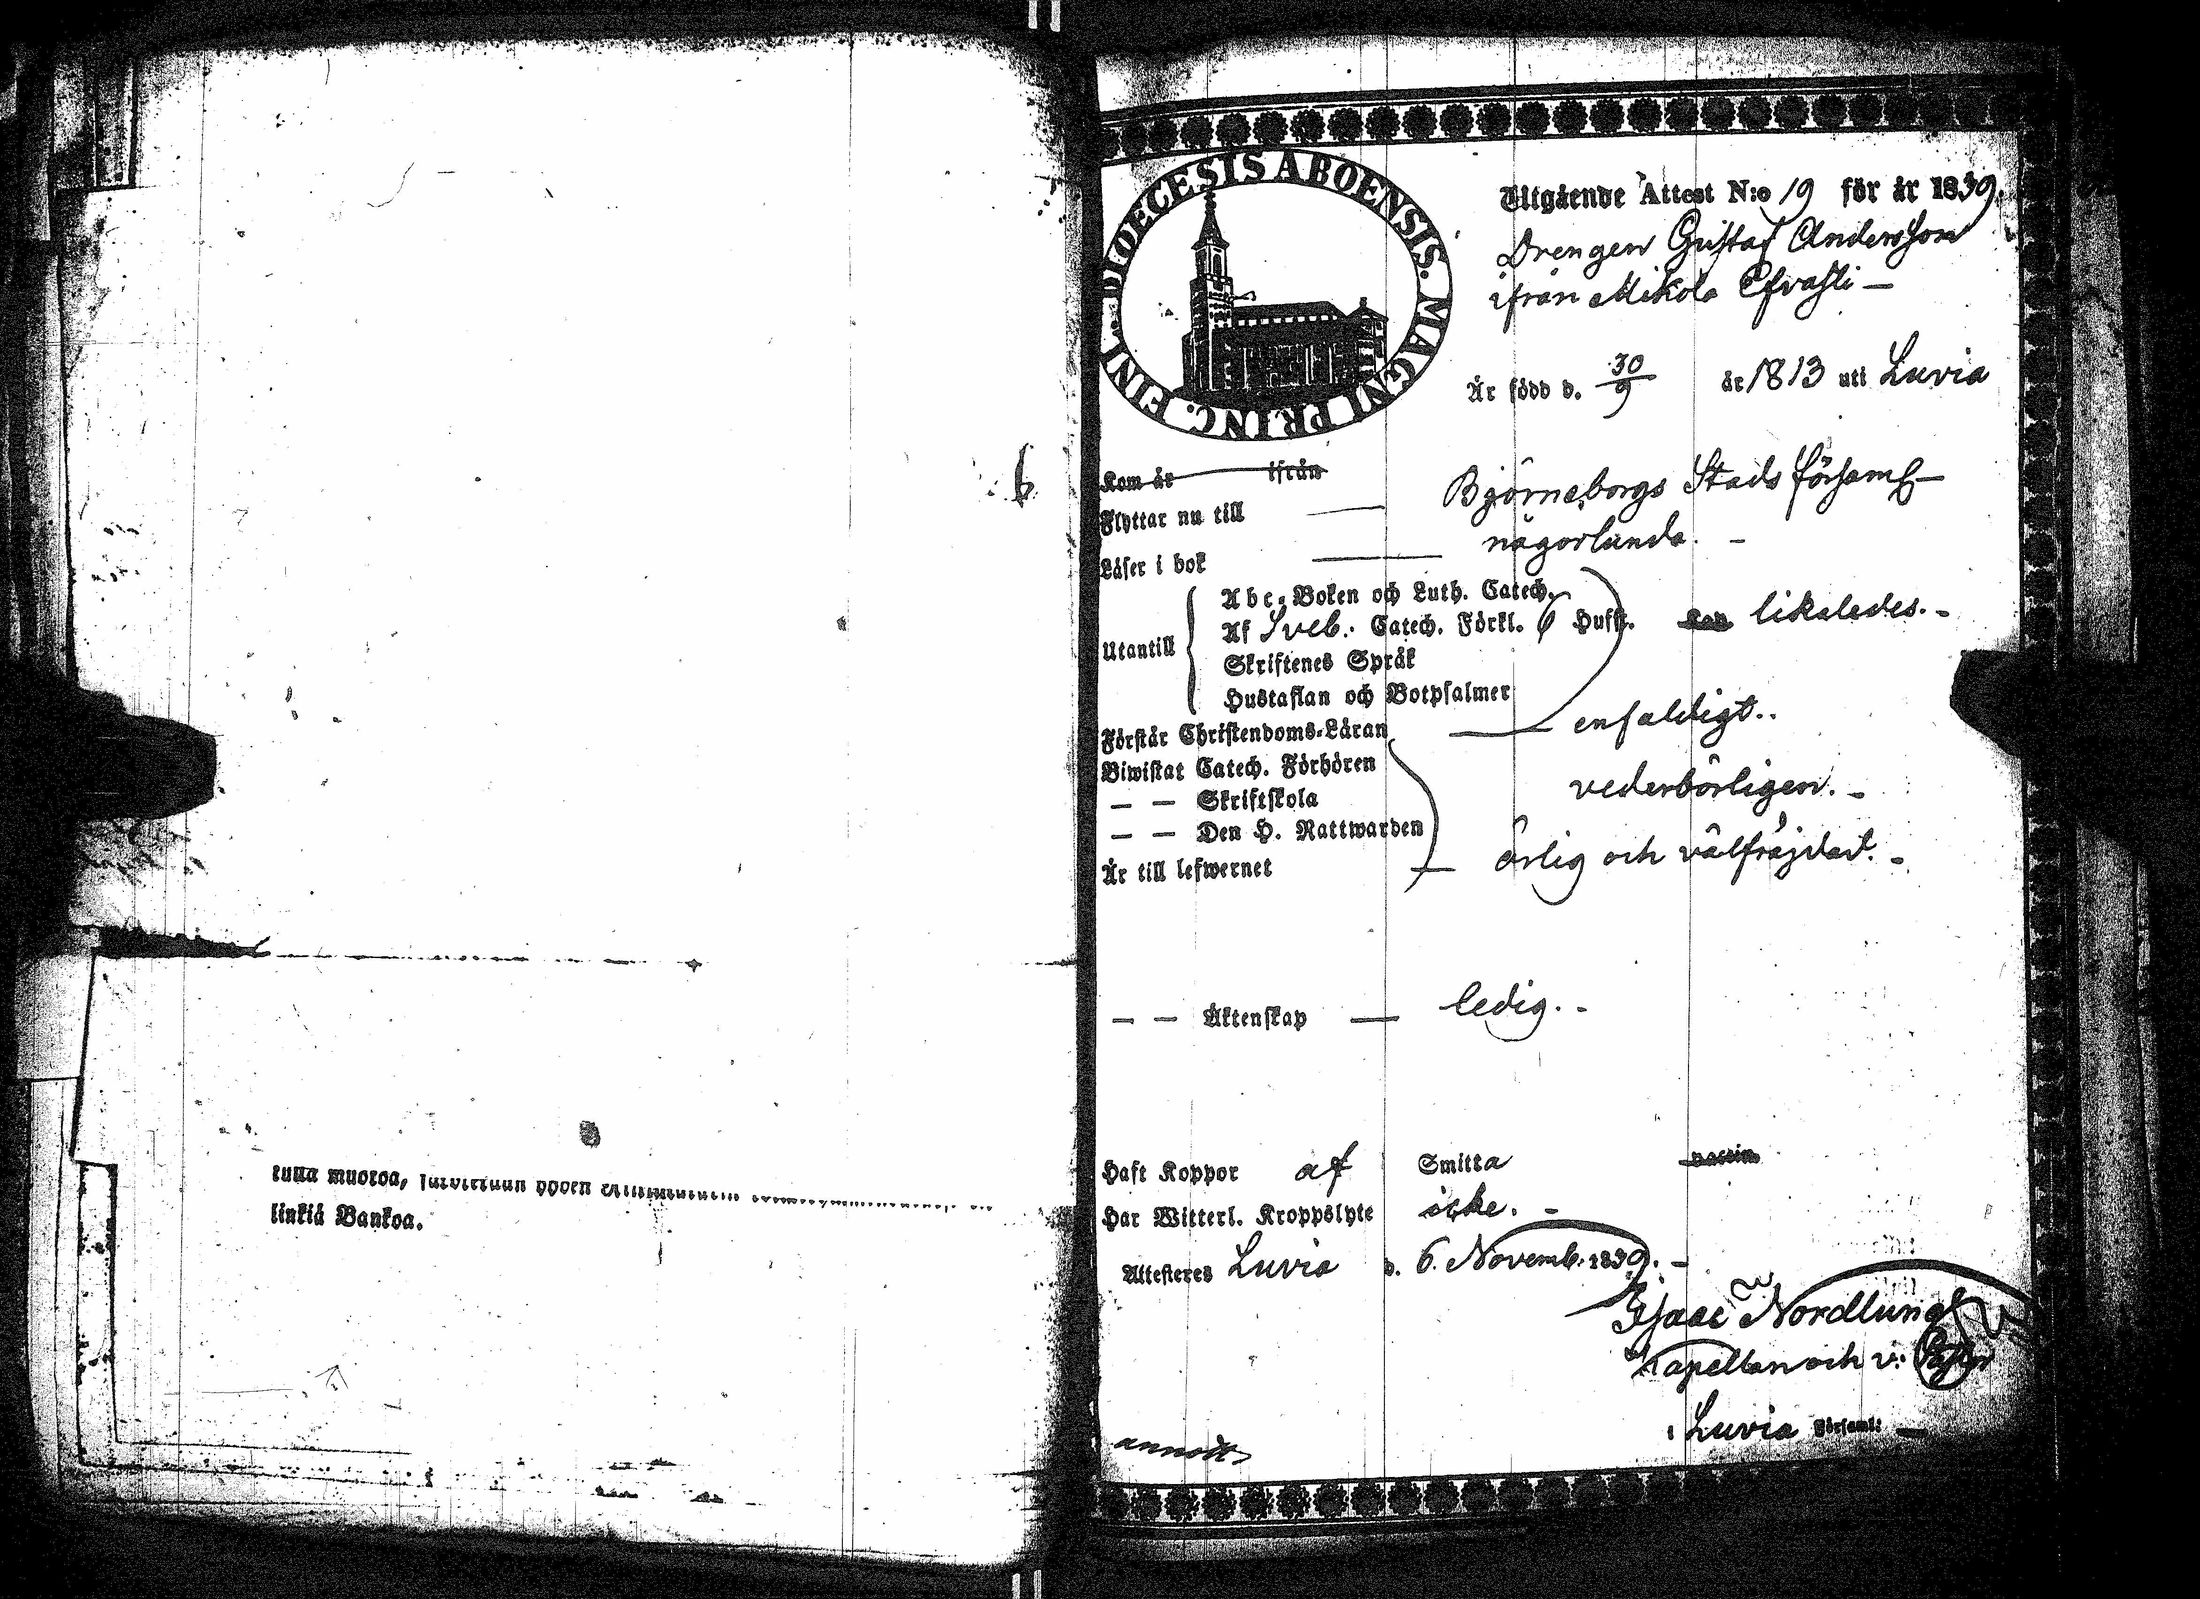 6
linkiä Bankoa.
DIOECESIS ABOENSIS. MAGNI PRINC. FINL.
Utgående Attest N:o 19 för år 1839.
Drengen Gustaf Andersson
ifrån Mikola Efrasti —
Är född d. 30/9 år 1813 uti Luvia
Kom år ifrån
Flyttar nu till — Björneborgs Stads Församl —
Läser i bok — någorlunda. —
Utantill
Abc-Boken och Luth. Catech.
Af Sveb. Catech. Förkl. 6 Hufst. likaledes. —
Skriftenes Språk
Hustaflan och Botpsalmer
Förstår Christendoms-Läran — enfaldigt..
Biwistat Catech. Förhören
— — Skriftskola vederbörligen. —
— — Den H. Nattwarden
Är till lefwernet — ärlig och välfräjdad. —
— — Äktenskap — ledig. —
Haft Koppor af Smitta
Har Witterl. Kroppslyte icke. —
Attesteres Luvia d. 6. Novemb. 1839. —
Isaac Nordlund
Kapellan och v. Pastor
i Luvia Församl: —